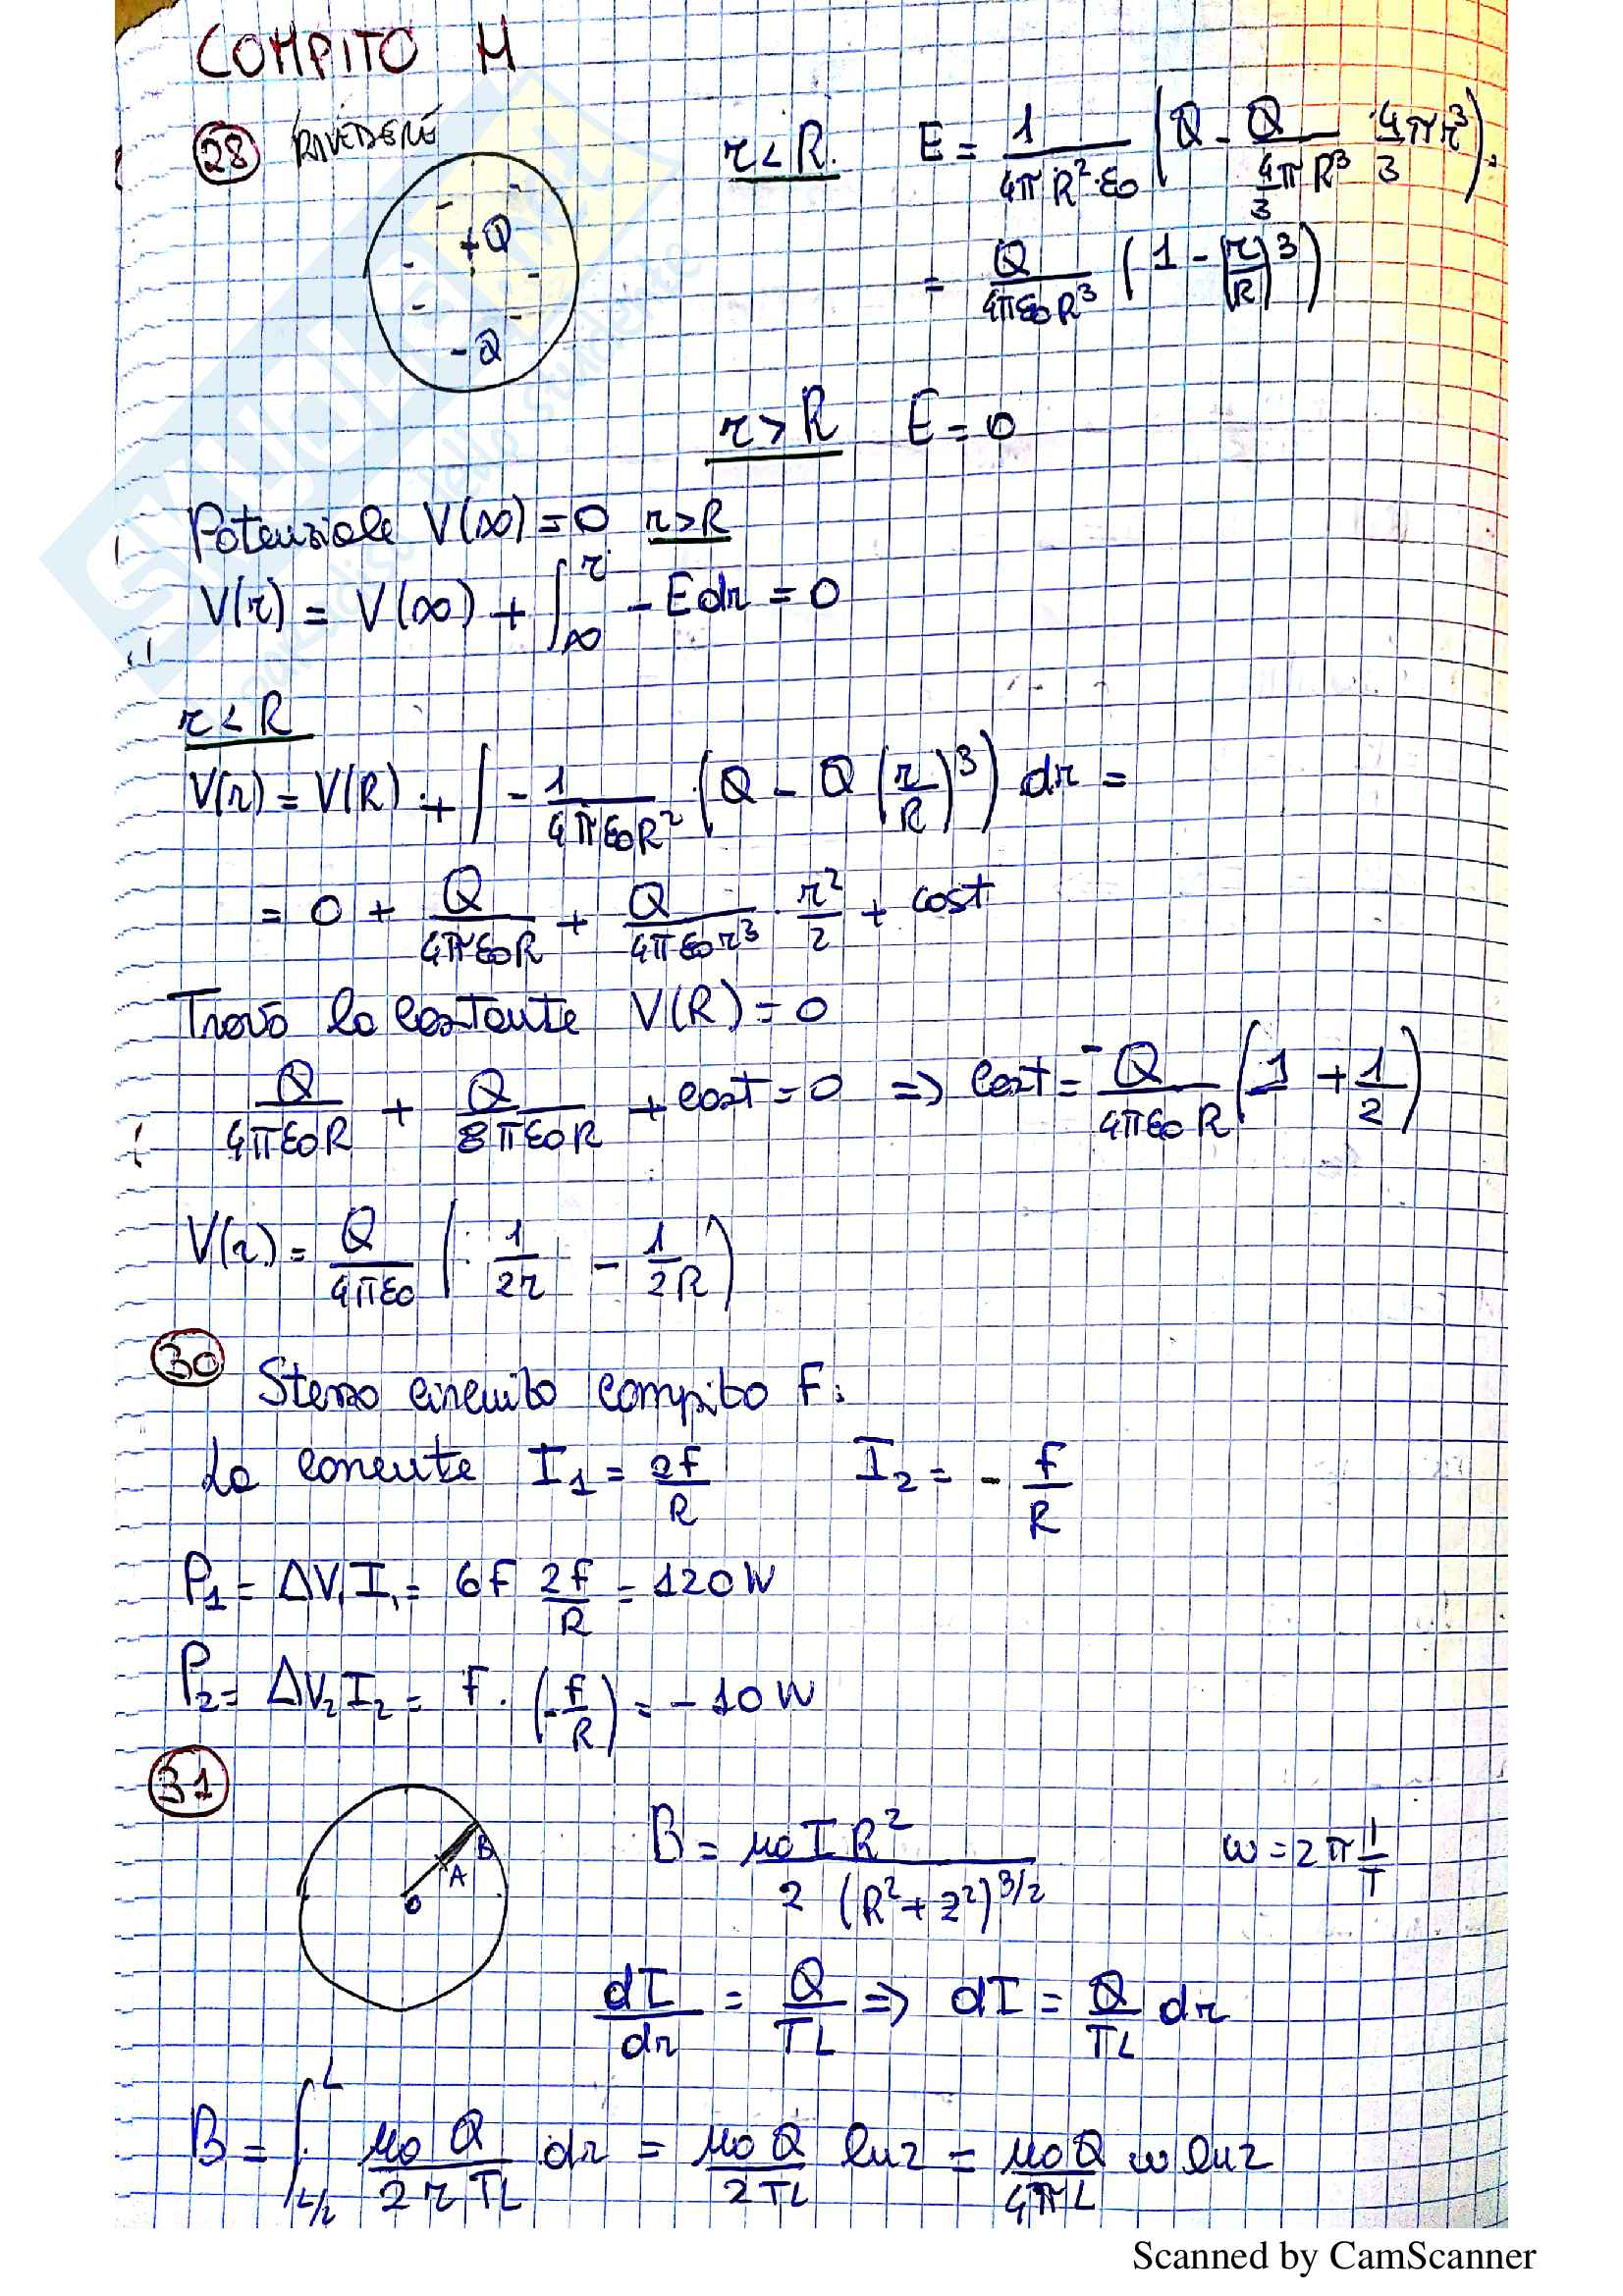 COMPITO M
28 RIVEDERE
r < R. E = 1/(4π R²·ε0) (Q - Q/(4/3 πR³) 4/3 πr³).
+Q
-Q
= Q/(4πε0R³) (1 - (r/R)³)
r > R E = 0
Potenziale V(∞) = 0 r > R
V(r) = V(∞) + ∫_∞^r - E dr = 0
r < R
V(r) = V(R) + ∫ - 1/(4πε0R²) · (Q - Q (r/R)³) dr =
= 0 + Q/(4πε0R) + Q/(4πε0r³) · r²/2 + cost
Trovo la costante V(R) = 0
Q/(4πε0R) + Q/(8πε0R) + cost = 0 => cost = - Q/(4πε0R) (1 + 1/2)
V(r) = Q/(4πε0) (1/2r - 1/2R)
30
Stesso circuito compito F:
La corrente I1 = 2f/R I2 = - f/R
P1 = ΔV1 I1 = 6f 2f/R = 120 W
P2 = ΔV2 I2 = f · (-f/R) = - 10 W
31
O A B
B = μ0 I R²/(2 (R² + z²)^3/2) ω = 2π 1/T
dI/dr = Q/TL => dI = Q/TL dr
B = ∫_L/2^L μ0 Q/(2 r TL) dr = μ0 Q/(2TL) ln2 = μ0 Q/(4πL) ω ln2
Scanned by CamScanner